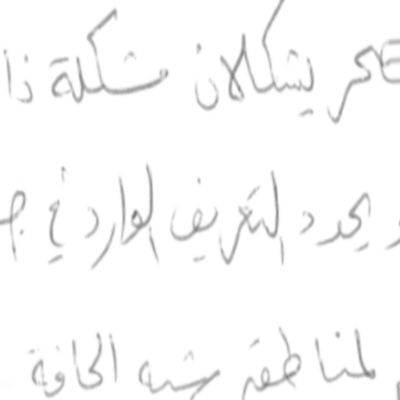 يشكلان مشكلة ذا
ويحدد التعريف الوارد في
لمناطق شبه الجافة